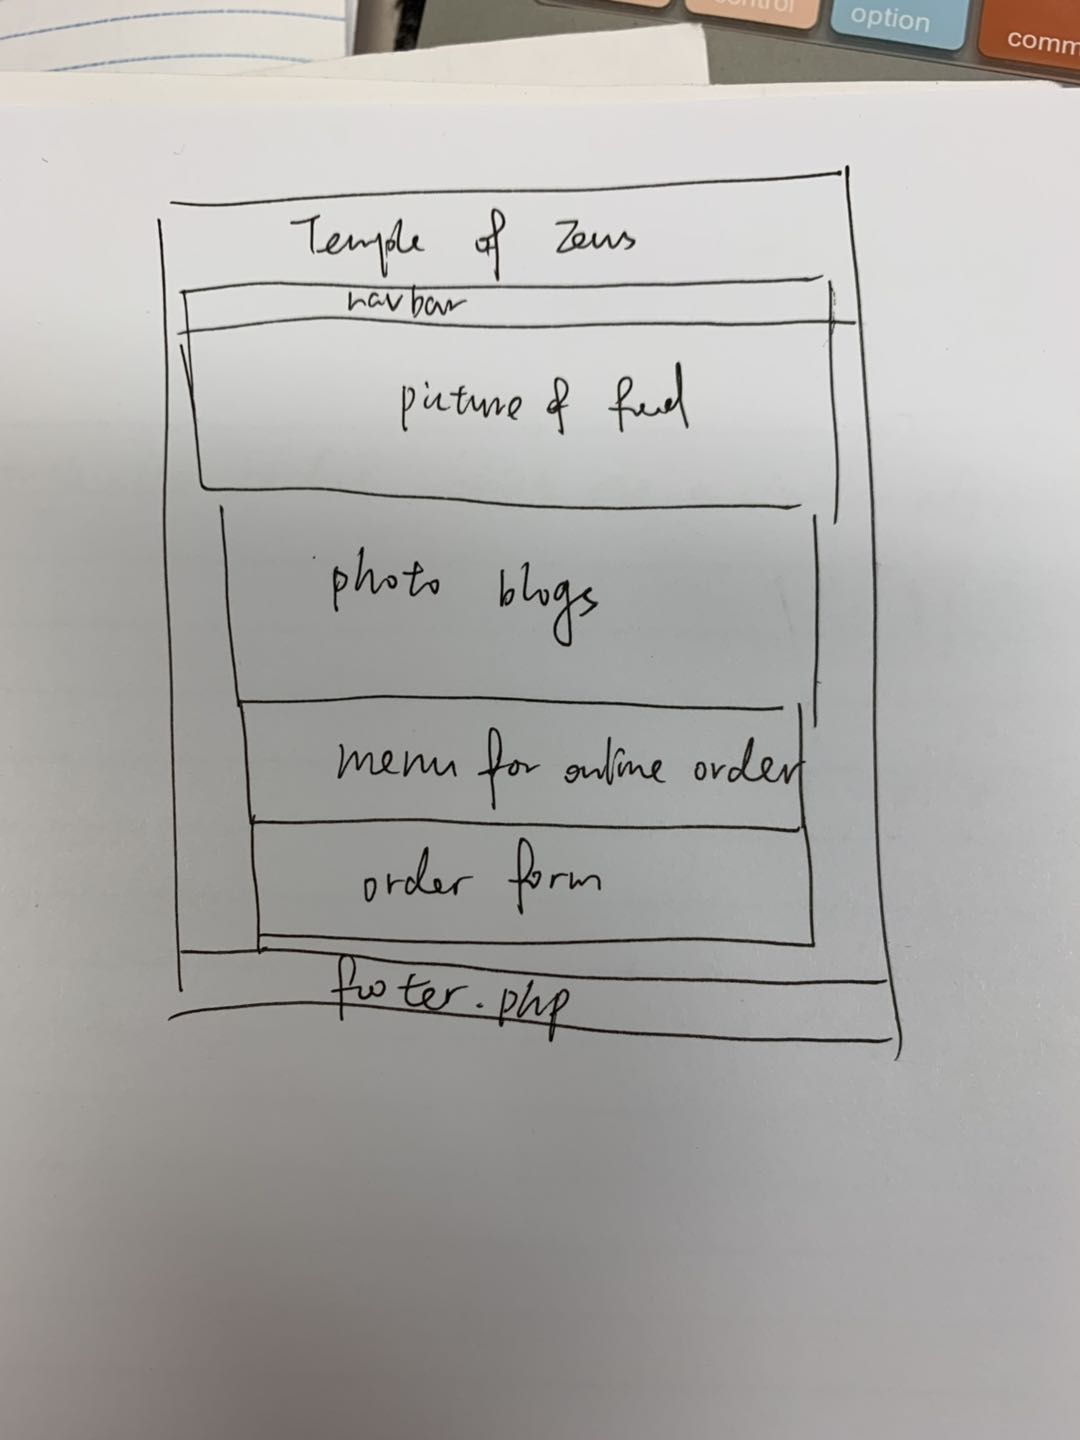 control
option
comm
Temple of Zeus
navbar
picture of food
photo blogs
menu for online order
order form
footer.php